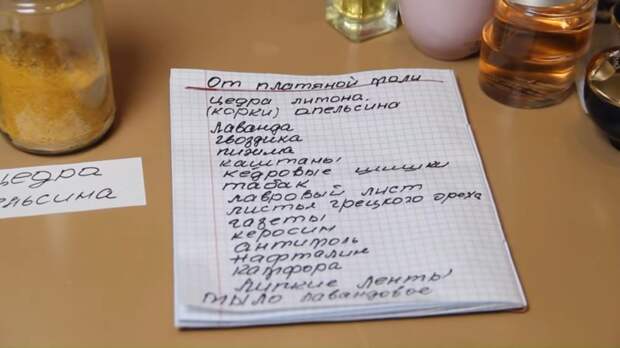 От платяной моли
цедра лимона,
(корки) апельсина
лаванда
гвоздика
пижма
каштаны
кедровые шишки
табак
лавровый лист
листья грецкого ореха
газеты
керосин
антимоль
нафталин
камфора
липкие ленты
мыло лавандовое
цедра
апельсина